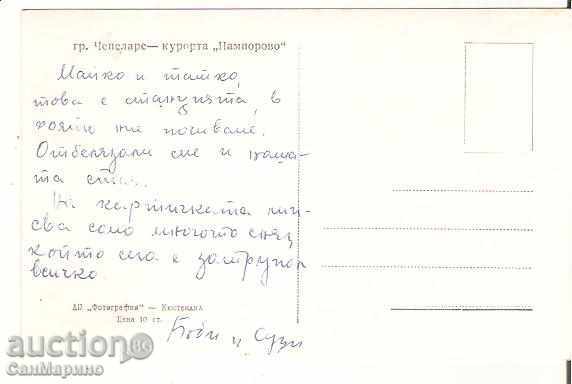 гр. Чепеларе — курорта „Пампорово“
Майко и татко,
това е станцията, в
която ни почиваме.
Отбелязали сме и наша-
та стая.
На картичката лип-
сва само многото сняг,
който сега е затрупал
всичко.
ДП „Фотография“ — Кюстендил
Цена 10 ст.
Боби и Сузи
auction BG
СанМарино